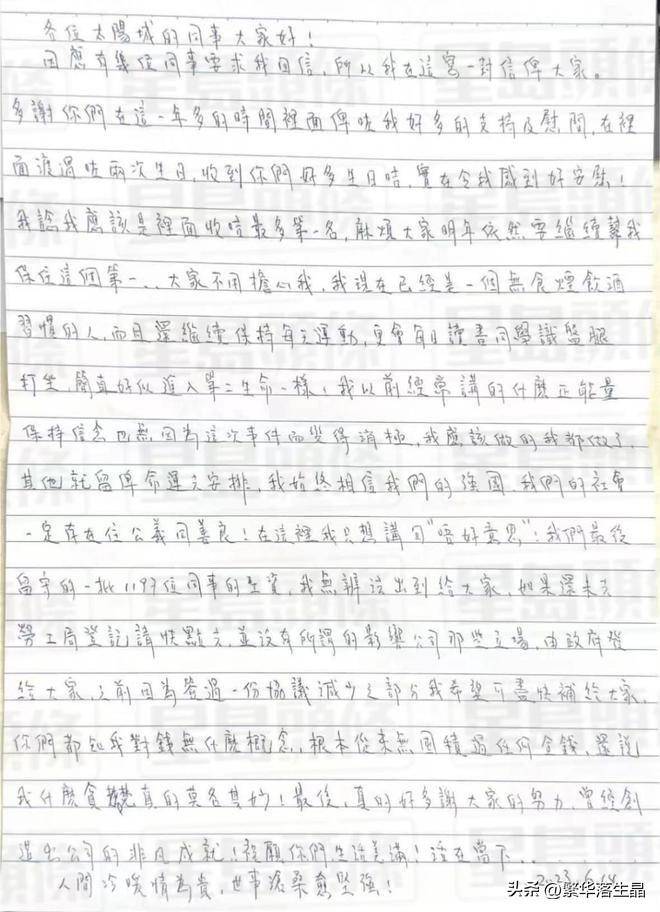 各位太陽城的同事大家好！
因應有幾位同事要求我回信，所以我在這寫一封信俾大家。
多謝你們在這一年多的時間裡面俾咗我好多的支持及慰問，在裡
面渡過咗兩次生日，收到你們好多生日咭，實在令我感到好安慰！
我諗我應該是裡面收咭最多第一名，麻煩大家明年依然要繼續幫我
保住這個第一... 大家不用擔心我，我現在已經是一個無食煙飲酒
習慣的人，而且還繼續保持每天運動，更會每日讀書同學識盤腿
打坐，簡直好似進入第二生命一樣，我以前經常講的什麼正能量
保持信念也無因為這次事件而變得消極，我應該做的我都做了，
其他就留俾命運之安排，我始終相信我們的強國，我們的社會
一定存在住公義同善良！在這裡我只想講句"唔好意思"！我們最後
留守的一批1197位同事的工資，我無辦法出到給大家，如果還未去
勞工局登記請快點去，並沒有所謂的影響公司那些立場，由政府發
給大家，之前因為簽過一份協議減少之部分我希望可盡快補給大家，
你們都知我對錢無什麼概念，根本從來無囤積過任何金錢，還說
我什麼貪婪真的莫名其妙！最後，真的好多謝大家的努力，曾經創
造出公司的非凡成就！祝願你們生活美滿！活在當下...
人間冷暖情為貴，世事滄桑愈堅強！
2023.6.14
星島頭條
头条 @繁华落生晶